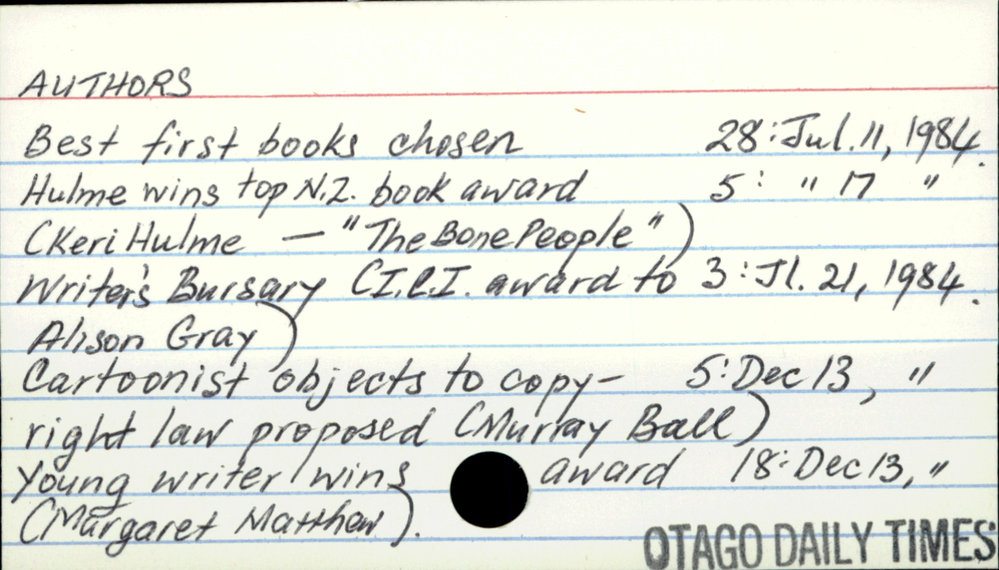 AUTHORS
Best first books chosen 28: Jul. 11, 1984.
Hulme wins top N.Z. book award 5: " 17 "
(Keri Hulme — "The Bone People")
Writer's Bursary (I.C.I. award to 3: Jl. 21, 1984.
Alison Gray)
Cartoonist objects to copy- 5: Dec 13, "
right law proposed (Murray Ball)
Young writer wins award 18: Dec 13, "
(Margaret Matthew).
OTAGO DAILY TIMES